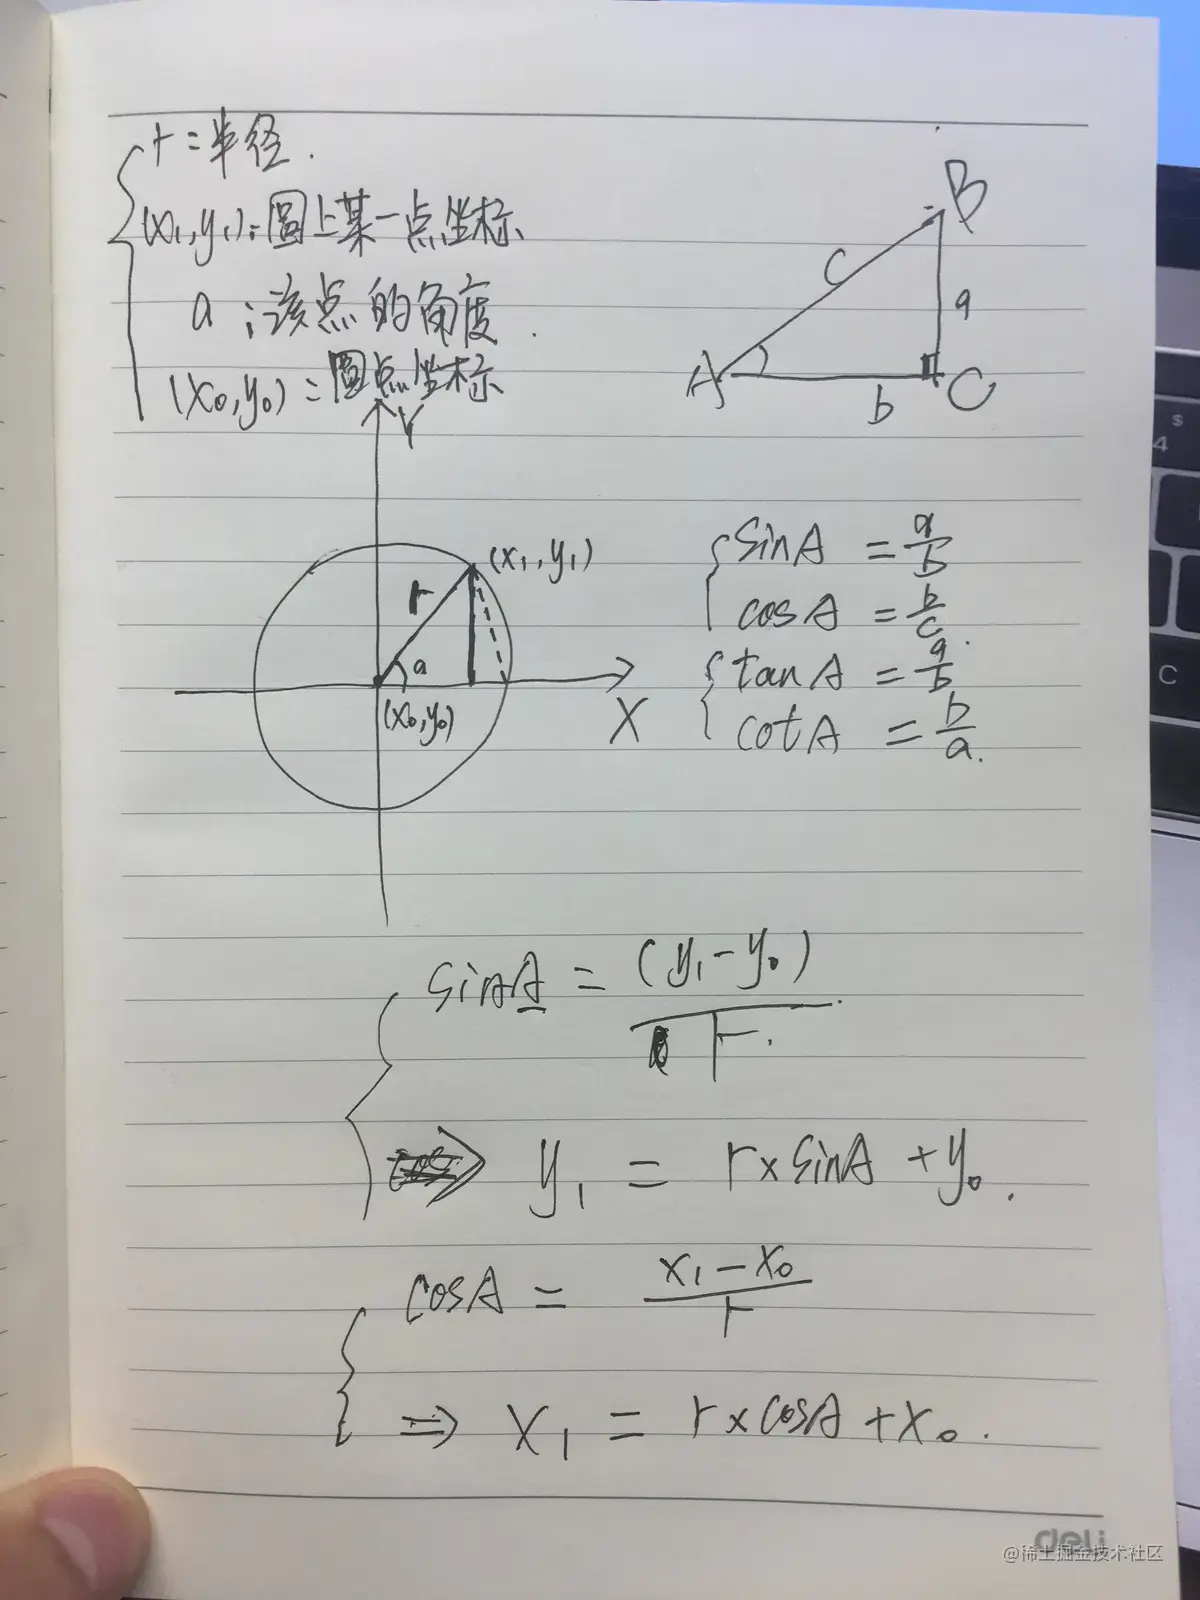 r = 半径.
(x₁,y₁): 圆上某一点坐标
a : 该点的角度.
(x₀,y₀) = 圆点坐标
B
c
a
A
b
C
Y
(x₁,y₁)
r
a
(x₀,y₀)
X
sinA = a/b
cosA = b/c.
tanA = a/b
cotA = b/a.
sinA = (y₁-y₀)/r.
⇒ y₁ = r×sinA + y₀.
cosA = x₁-x₀/r
⇒ x₁ = r×cosA + x₀.
deli
@稀土掘金技术社区
s
4
C